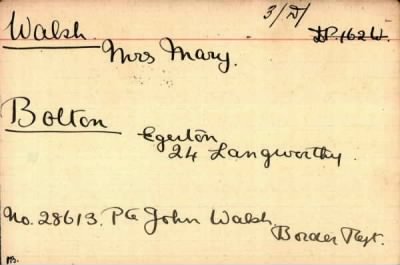 Walsh 3/D/ D.P.162W.
Mrs Mary.
Bolton
Egerton
24 Langworthy.
No. 28613. Pte John Walsh
Border Regt.